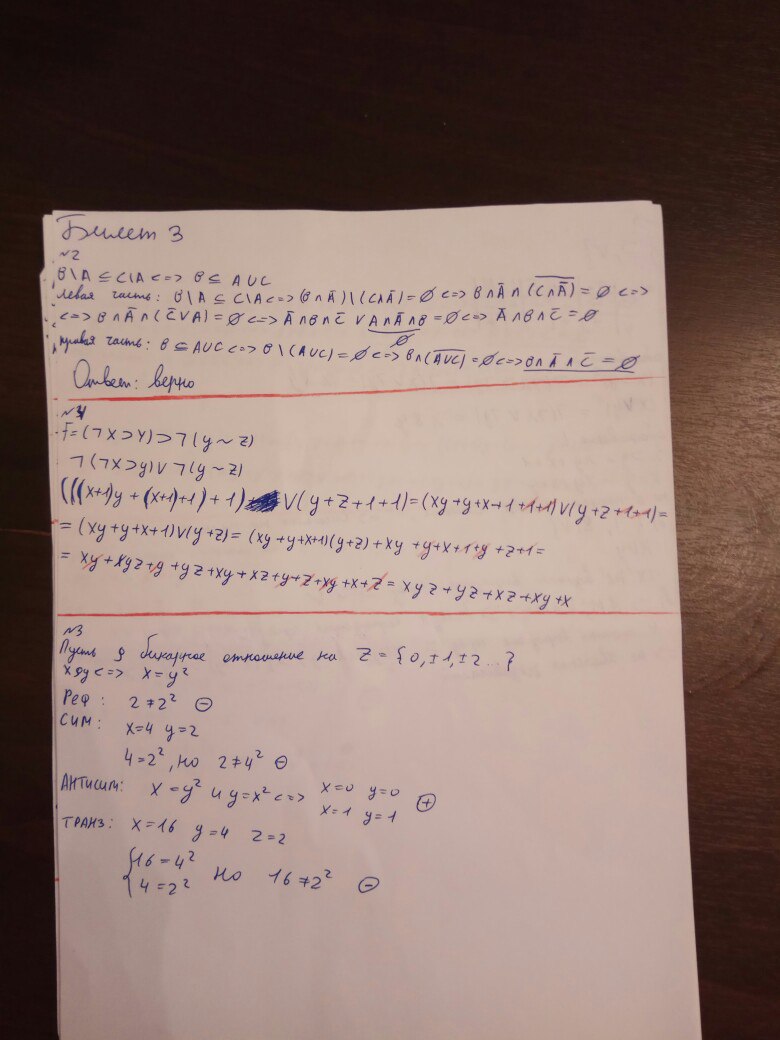 Билет 3
№2
B\A ⊆ C\A <=> B ⊆ A∪C
левая часть: B\A ⊆ C\A <=> (B∩Ā)\(C∩Ā) = ∅ <=> B∩Ā∩(C∩Ā)‾ = ∅ <=>
<=> B∩Ā∩(C̄∨A) = ∅ <=> Ā∩B∩C̄ ∨ A∩Ā∩B = ∅ <=> Ā∩B∩C̄ = ∅
∅
правая часть: B ⊆ A∪C <=> B\(A∪C) = ∅ <=> B∩(A∪C)‾ = ∅ <=> B∩Ā∩C̄ = ∅
Ответ: верно
№4
F = (¬X ⊃ Y) ⊃ ¬(y ~ z)
¬(¬X ⊃ y) ∨ ¬(y ~ z)
(((x+1)y + (x+1)+1)+1) ∨ (y+z+1+1) = (xy+y+x+1+1+1) ∨ (y+z+1+1) =
= (xy+y+x+1) ∨ (y+z) = (xy+y+x+1)(y+z) + xy + y+x+1+y + z+1 =
= xy + xyz + y + yz + xy + xz + y + z + xy + x + z = xyz + yz + xz + xy + x
№3
Пусть ρ бинарное отношение на Z = {0, ±1, ±2 ...}
xρy <=> x = y²
РЕФ: 2 ≠ 2² ⊖
СИМ: x=4 y=2
4 = 2², но 2 ≠ 4² ⊖
АНТИСИМ: x = y² и y = x² <=> x=0 y=0
x=1 y=1 ⊕
ТРАНЗ: x=16 y=4 z=2
{16 = 4²
4 = 2² но 16 ≠ 2² ⊖